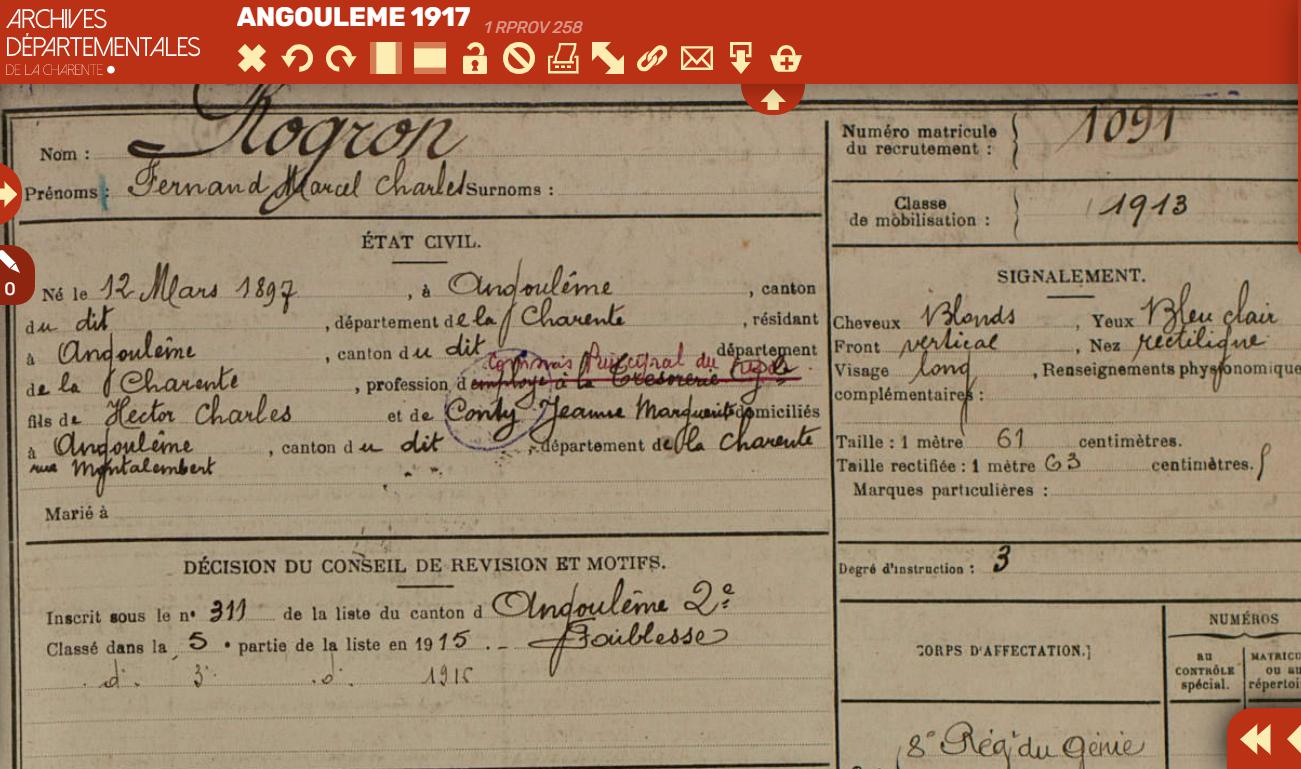 ARCHIVES
DÉPARTEMENTALES
DE LA CHARENTE
ANGOULEME 1917
1 RPROV 258
0
Nom : Rogron
Prénoms : Fernand Marcel Charles Surnoms :
Numéro matricule
du recrutement : 1091
Classe
de mobilisation : 1913
ÉTAT CIVIL.
Né le 12 Mars 1897, à Angoulême, canton
du dit, département de la Charente, résidant
à Angoulême, canton du dit département
Commis Principal du
de la Charente, profession d employé à la Trésorerie Gle
fils de Hector Charles et de Conty Jeanne Marguerite domiciliés
à Angoulême, canton du dit, département de la Charente
rue Montalembert
Marié à
SIGNALEMENT.
Cheveux Blonds, Yeux Bleu clair
Front vertical, Nez rectiligne
Visage long, Renseignements physionomique
complémentaires :
Taille : 1 mètre 61 centimètres.
Taille rectifiée : 1 mètre 63 centimètres.
Marques particulières :
Degré d'instruction : 3
DÉCISION DU CONSEIL DE REVISION ET MOTIFS.
Inscrit sous le n° 311 de la liste du canton d Angoulême 2e
Classé dans la 5e partie de la liste en 1915. - Faiblesse
d° 3e d° 1916
CORPS D'AFFECTATION.
NUMÉROS
au
CONTRÔLE
spécial.
MATRICU
ou au
répertoi
8e Régt du Génie